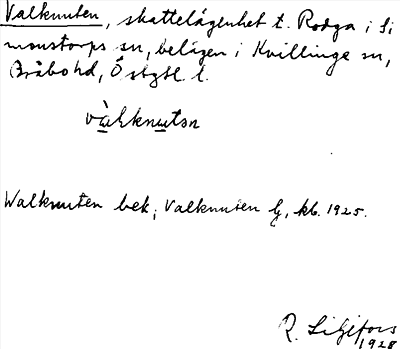 Valknuten, skattelägenhet t. Rodga i Si
monstorps sn, belägen i Kvillinge sn,
Bråbo hd, Östgtl l.
Walknuten bek; Valknuten lg, kb. 1925.
R. Liljefors
1928